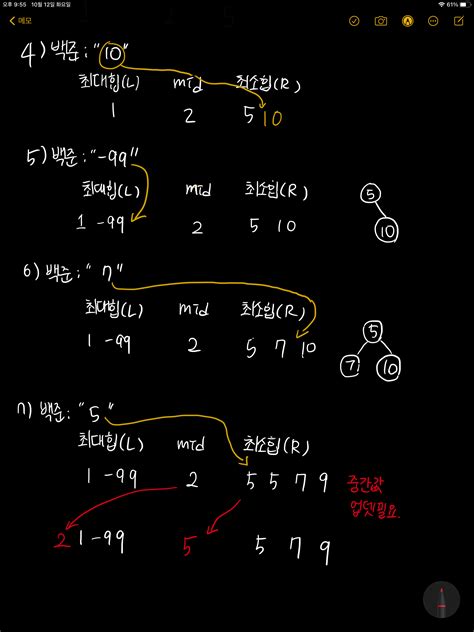 오후 9:55 10월 12일 화요일
61%
메모
4) 백준: "10"
최대힙(L) mid 최소힙(R)
1 2 5 10
5) 백준: "-99"
최대힙(L) mid 최소힙(R)
1 -99 2 5 10
5
10
6) 백준: "7"
최대힙(L) mid 최소힙(R)
1 -99 2 5 7 10
5
7 10
7) 백준: "5"
최대힙(L) mid 최소힙(R)
1 -99 2 5 5 7 9
중간값
업뎃필요.
2 1 -99 5 5 7 9